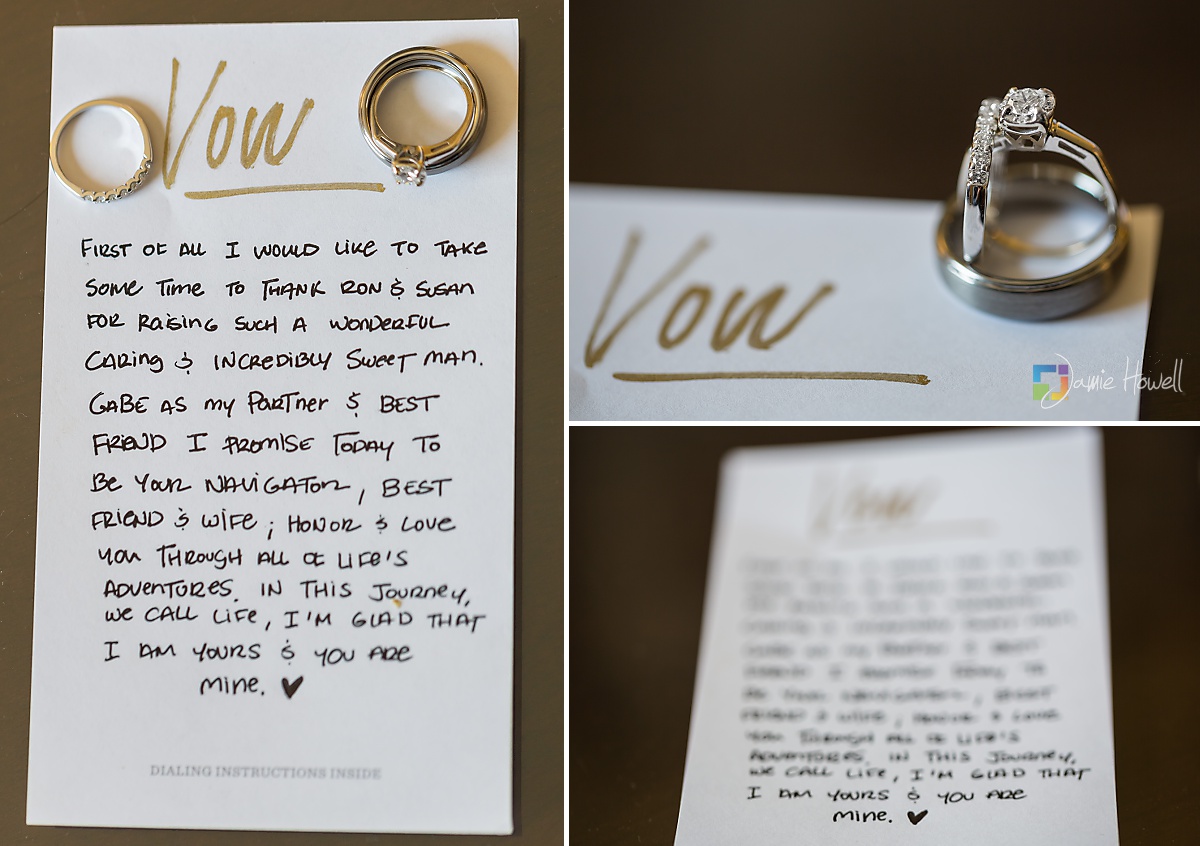 Vow
FIRST OF ALL I WOULD LIKE TO TAKE
SOME TIME TO THANK RON & SUSAN
FOR RAISING SUCH A WONDERFUL
CARING & INCREDIBLY SWEET MAN.
GABE AS MY PARTNER & BEST
FRIEND I PROMISE TODAY TO
BE YOUR NAVIGATOR, BEST
FRIEND & WIFE; HONOR & LOVE
YOU THROUGH ALL OF LIFE'S
ADVENTURES. IN THIS JOURNEY,
WE CALL LIFE, I'M GLAD THAT
I AM YOURS & YOU ARE
MINE. ♥
DIALING INSTRUCTIONS INSIDE
Vow
Jamie Howell
Vow
BE YOUR NAVIGATOR, BEST
FRIEND & WIFE, HONOR & LOVE
YOU THROUGH ALL OF LIFE'S
ADVENTURES. IN THIS JOURNEY,
WE CALL LIFE, I'M GLAD THAT
I AM YOURS & YOU ARE
MINE. ♥